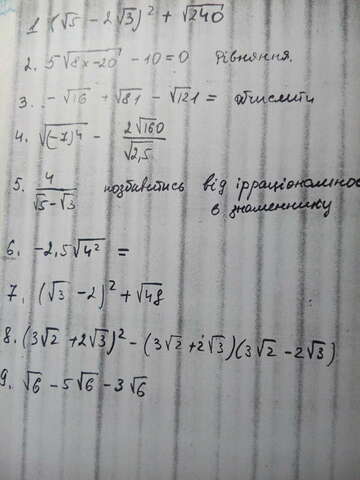 1 (√5 - 2√3)² + √240
2. 5√(8x-20) - 10 = 0 Рівняння.
3. -√16 + √81 - √121 = обчислити
4. √(-7)⁴ - 2√160/√2,5
5. 4/(√5-√3) позбавитись від ірраціональнос
в знаменнику
6. -2,5√4² =
7. (√3 - 2)² + √48
8. (3√2 + 2√3)² - (3√2 + 2√3)(3√2 - 2√3)
9. √6 - 5√6 - 3√6